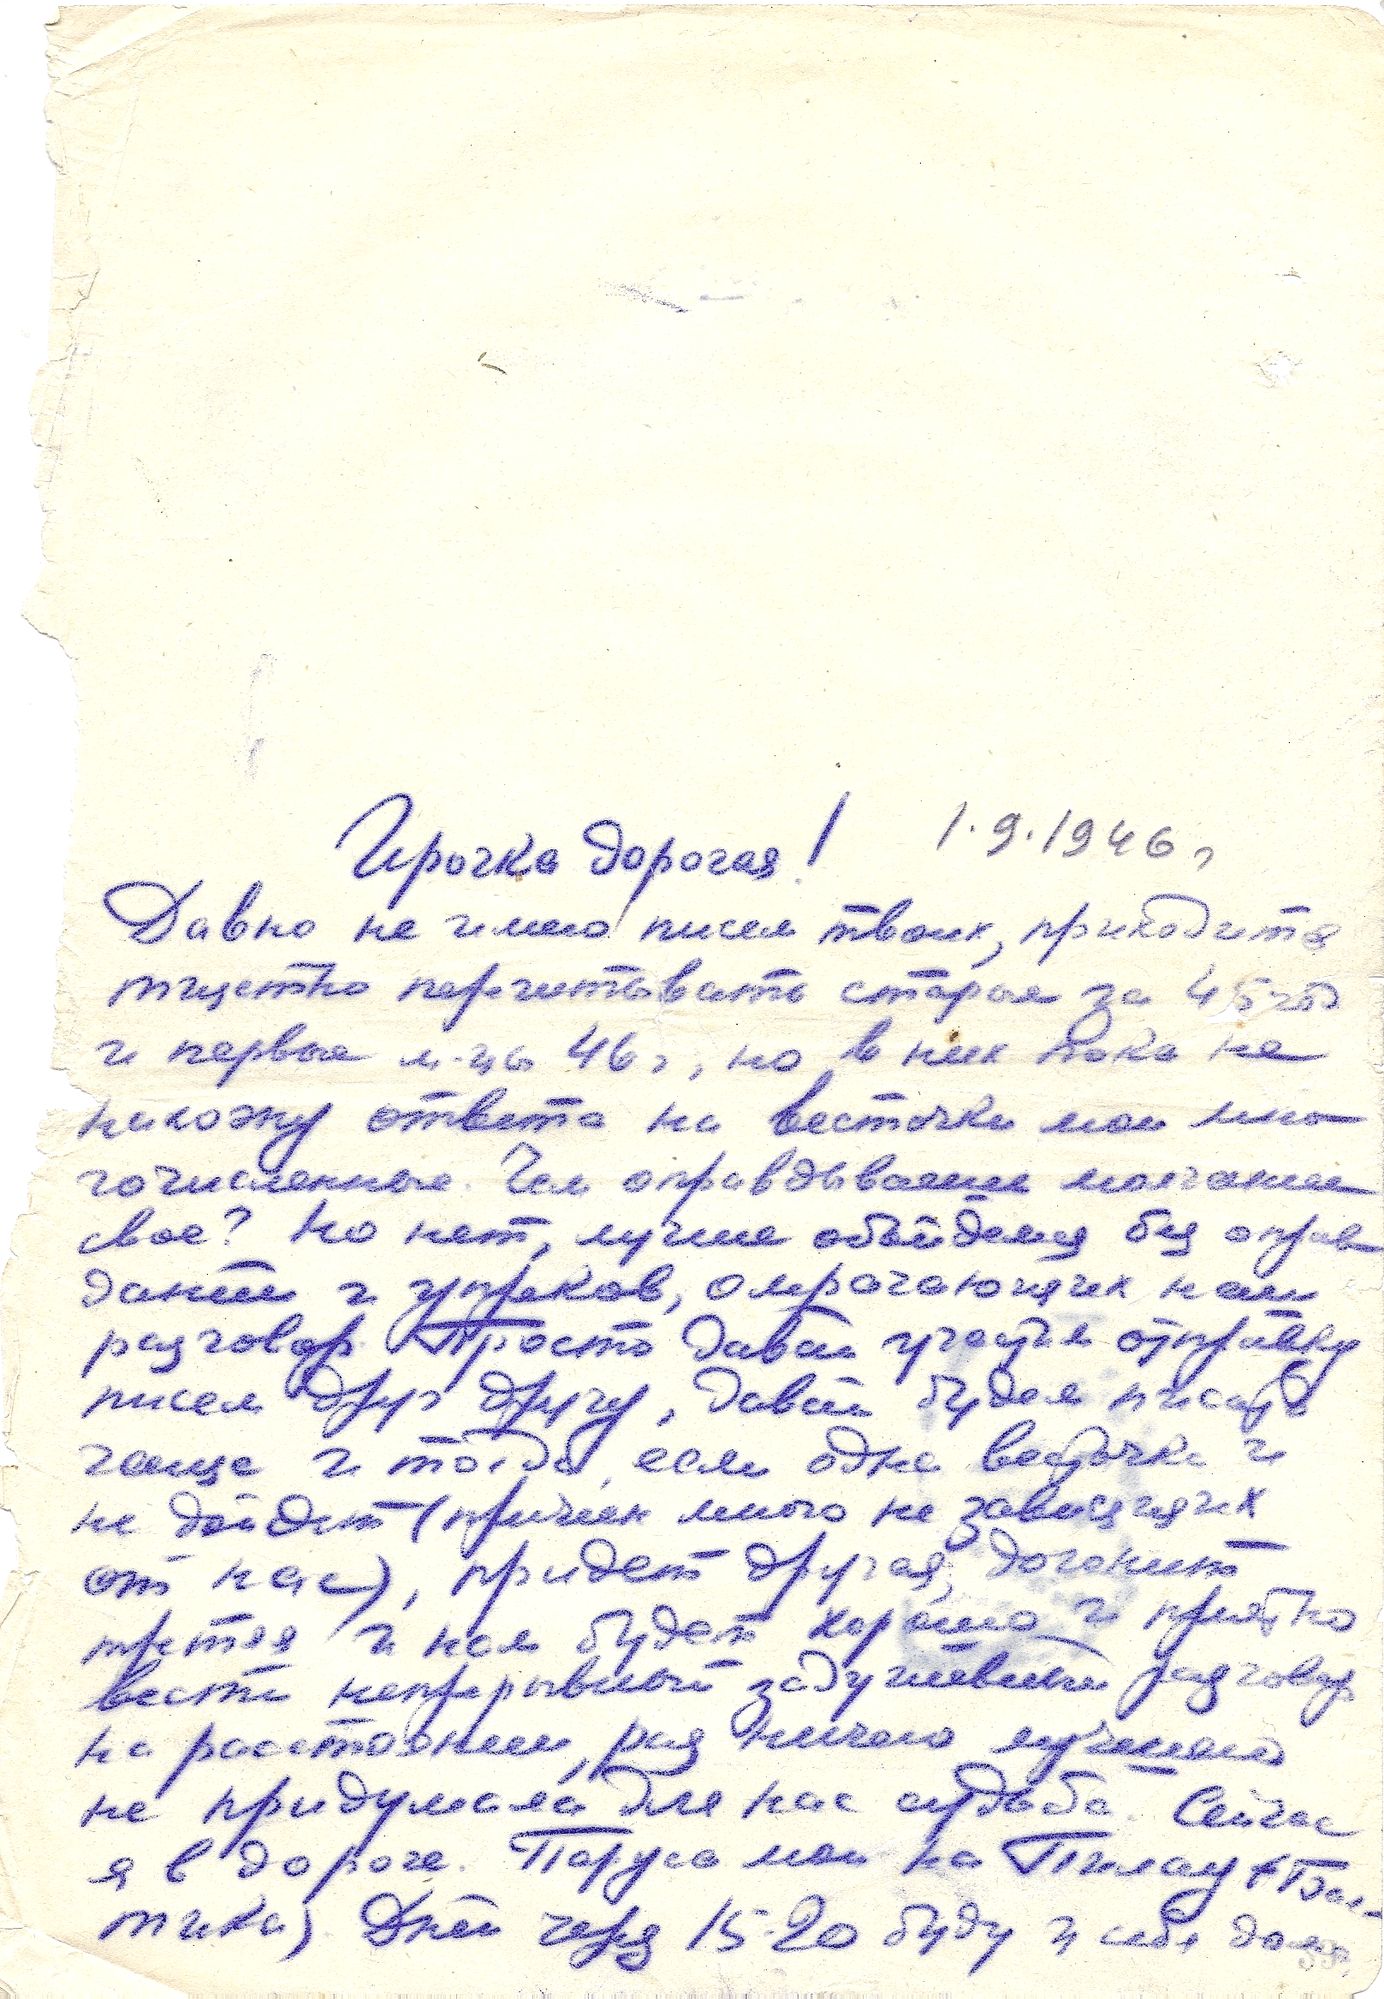 Ирочка дорогая! 1.9.1946 г
Давно не имею писем твоих, приходится
тщетно перечитывать старые за 45 год
и первые м-цы 46 г, но в них пока не
нахожу ответа на весточки мои мно-
гочисленные. Чем оправдываешь молчание
свое? Но нет, лучше обойдемся без оправ
даний и упреков, омрачающих наш
разговор. Просто давай участим отправку
писем друг другу, давай будем писать
чаще и тогда, если одна весточка и
не дойдет (причин много не зависящих
от нас), придет другая, догонит
третья и нам будет хорошо и приятно
вести непрерывный задушевный разговор
на расстоянии, раз ничего лучшего
не придумала для нас судьба. Сейчас
я в дороге. Паруса мои на Пилау (Бал-
тика). Дней через 15-20 буду у себя дома